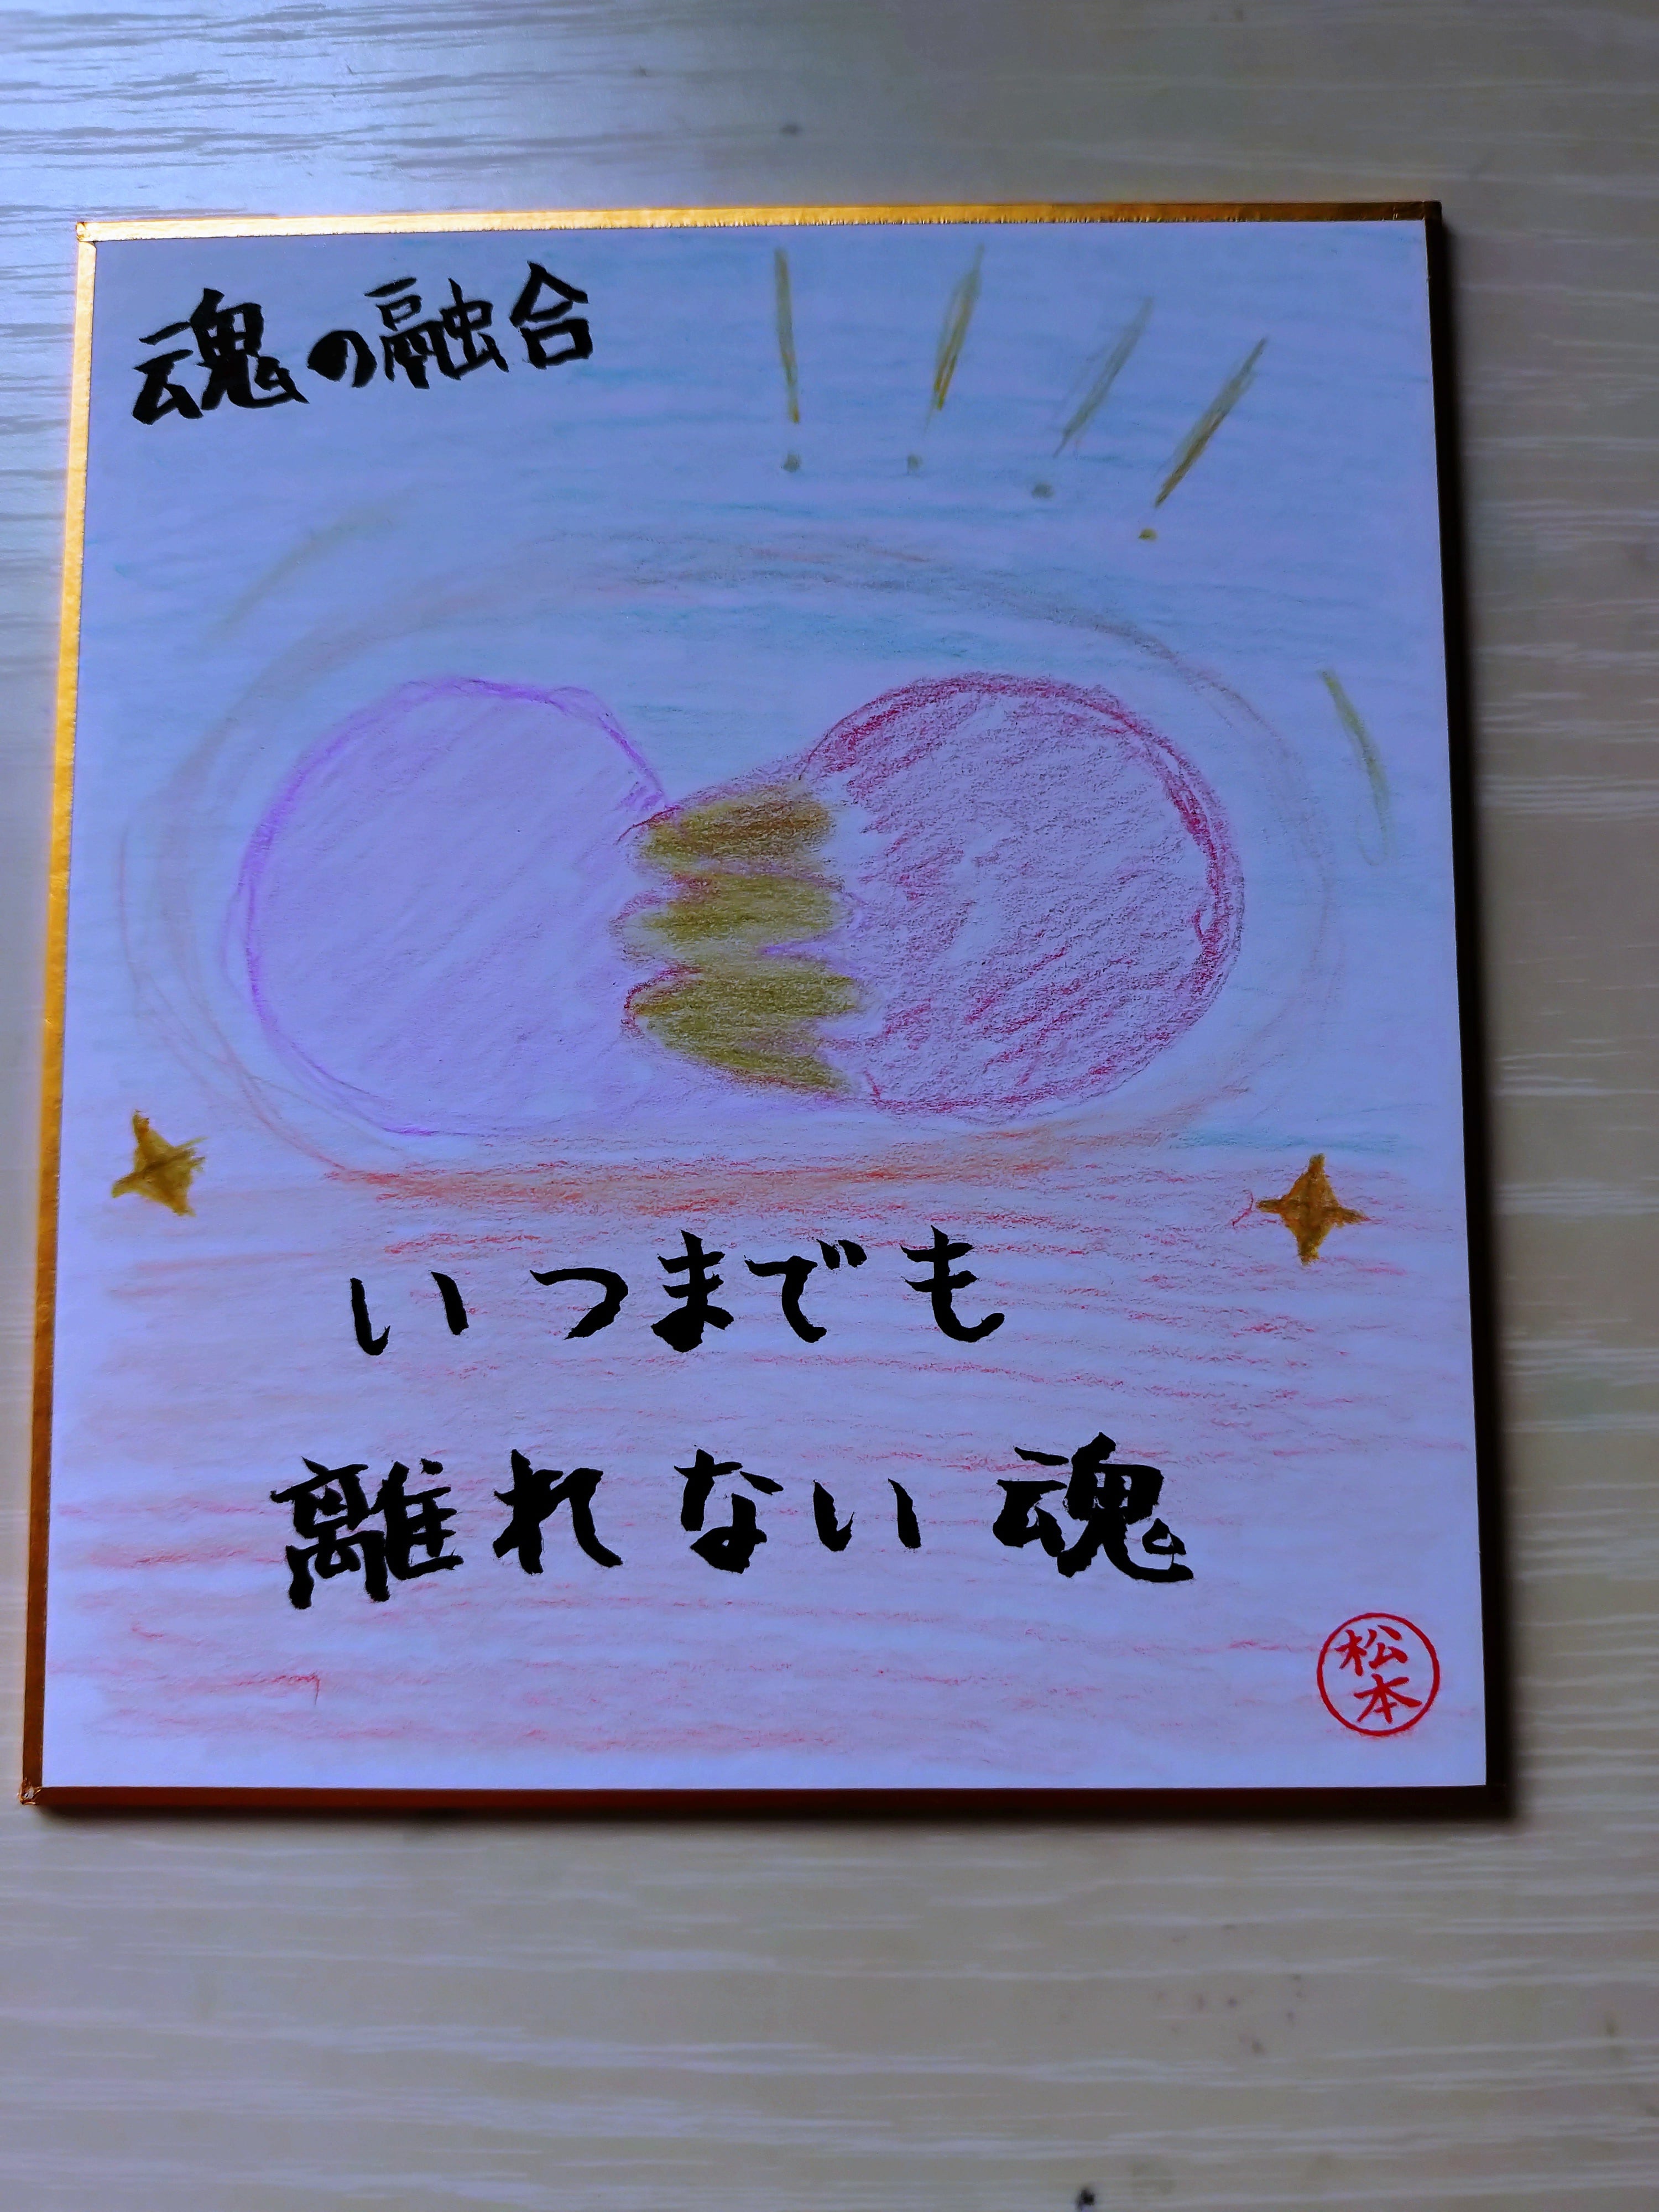 魂の融合
いつまでも
離れない魂
松本